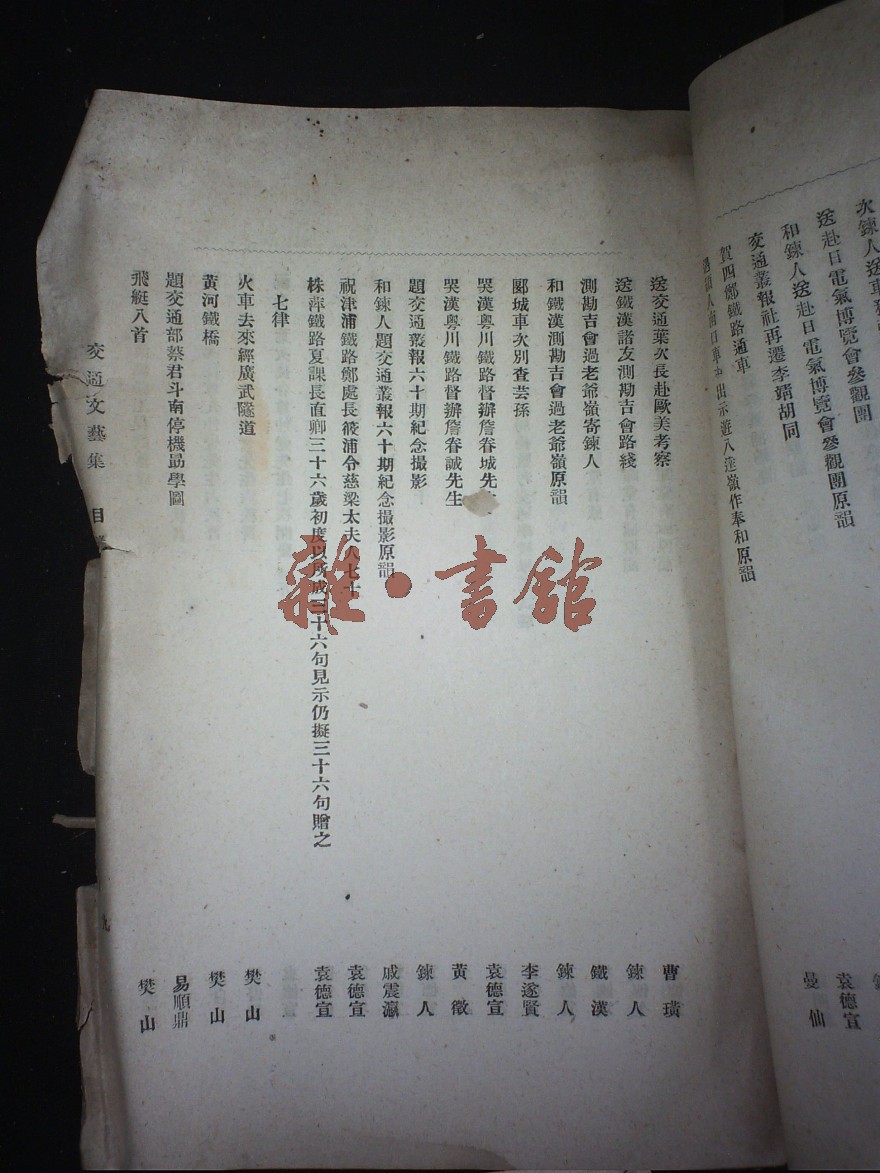 次鍊人送
送赴日電氣博覽會參觀團
和鍊人送赴日電氣博覽會參觀團原韻
袁德宣
交通叢報社再遷李靖胡同
曼仙
賀四鄭鐵路通車
出示遊八達嶺作奉和原韻
送交通葉次長赴歐美考察
曹璜
送鐵漢諸友測勘吉會路綫
鍊人
測勘吉會過老爺嶺寄鍊人
鐵漢
和鐵漢測勘吉會過老爺嶺原韻
鍊人
郾城車次別查芸孫
李遂賢
哭漢粵川鐵路督辦詹眷城先
袁德宣
哭漢粵川鐵路督辦詹眷誠先生
黃徵
題交通叢報六十期紀念撮影
鍊人
和鍊人題交通叢報六十期紀念撮影原韻
戚震瀛
祝津浦鐵路鄭處長筱浦令慈梁太夫人七十
袁德宣
株萍鐵路夏課長直卿三十六歲初度以所成三十六句見示仍擬三十六句贈之
袁德宣
七律
火車去來經廣武隧道
樊山
黃河鐵橋
樊山
題交通部蔡君斗南停機勗學圖
易順鼎
飛艇八首
樊山
交通文藝集 目
九
雜·書館